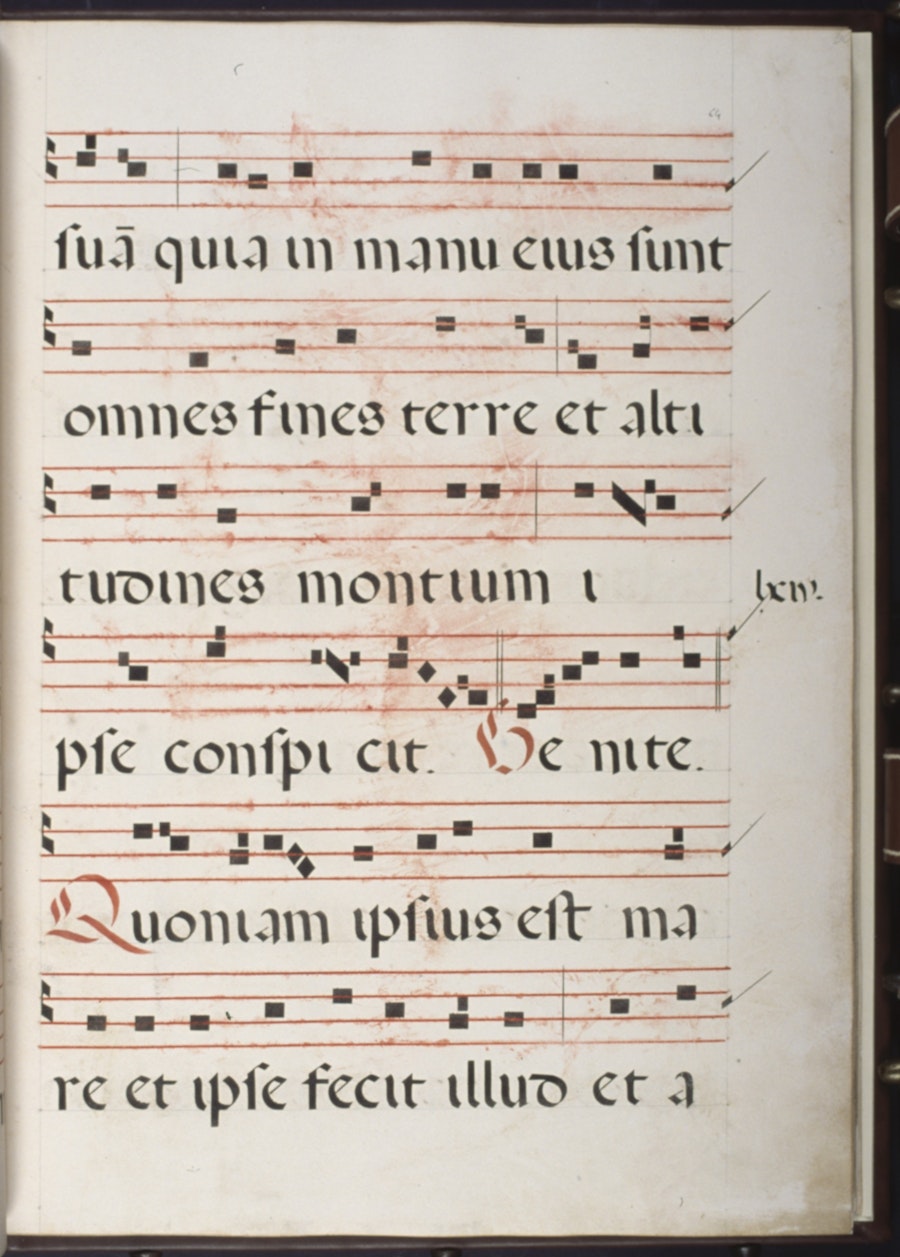 64
ſuā quia in manu eius ſunt
omnes fines terre et alti
tudines montium i
lxiv.
pſe conſpi cit. Ve nite.
Quoniam ipſius eſt ma
re et ipſe fecit illud et a